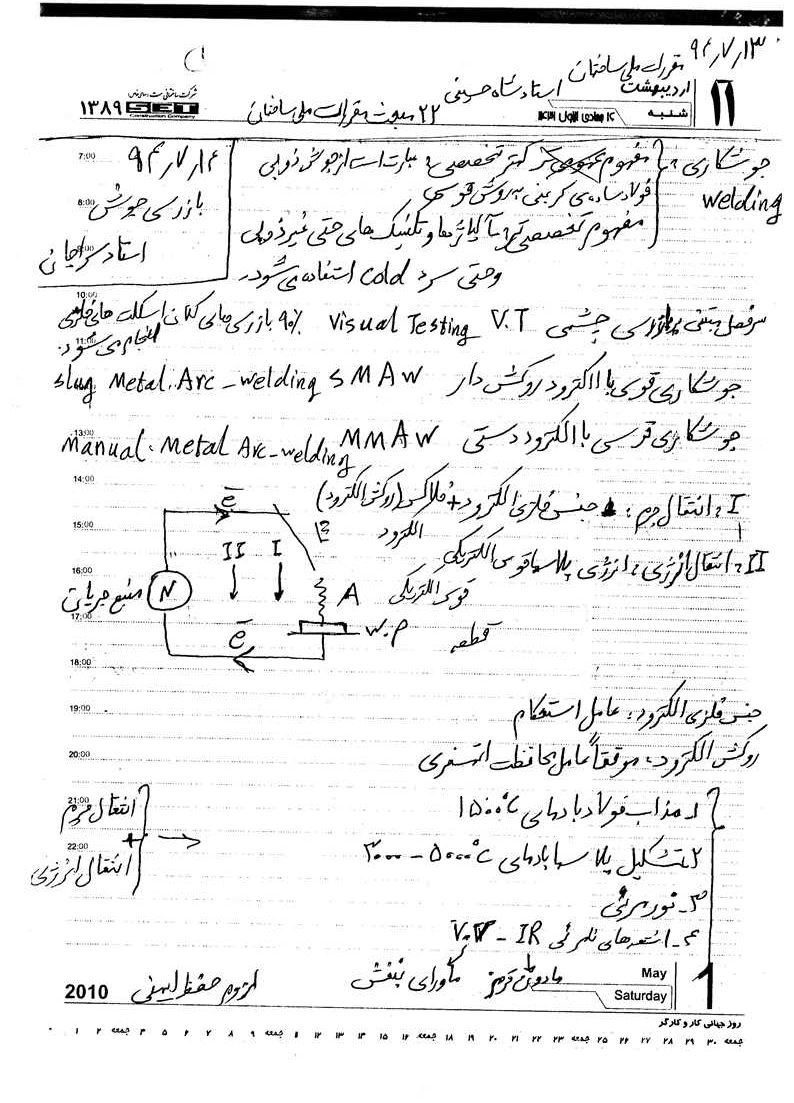 ۹۴٫۷٫۱۳
مقررات ملی ساختمان
اردیبهشت
۱۱
استاد شاه حسینی
شنبه
۱۶ جمادی الاول ۱۴۳۱
۲۲ مبحث مقررات ملی ساختمان
۱۳۸۹ SET
Construction Company
7:00
جوشکاری: مفهوم کمتر تخصصی: عبارت است از جوش ذوبی
welding
فولاد ساده‌ی کربنی به روش قوسی
مفهوم تخصصی تر: آلیاژها و تکنیک های حتی غیر ذوبی
وحتی سرد cold استفاده می شود.
۹۴٫۷٫۱۴
8:00
بازرسی جوش
استاد
10:00
سرفصل مبتنی بازرسی چشمی Visual Testing V.T ۹۰٪ بازرسی های کلان اسکلت های فلزی
11:00
انجام می شود.
جوشکاری قوسی با الکترود روکش دار slug Metal Arc-welding SMAW
13:00
جوشکاری قوسی با الکترود دستی Manual Metal Arc-welding MMAW
14:00
I: انتقال جرم: جنس فلزی الکترود + فلاکس (روکش الکترود)
15:00
II: انتقال انرژی: انرژی پلاسما قوس الکتریکی
ē
E
الکترود
II I
16:00
منبع جریان N
A قوس الکتریکی
17:00
ē
W.P قطعه
18:00
19:00
جنس فلزی الکترود: عامل استحکام
20:00
روکش الکترود: موقتاً عامل محافظت اتمسفری
21:00
۱. مذاب فولاد با دمای ۱۵۰۰°C
انتقال جرم
+
22:00
انتقال انرژی
۲. تشکیل پلاسما با دمای ۳۰۰۰-۵۰۰۰°C
۳- نور مرئی
۴- اشعه های نامرئی V.V - IR
مادون قرمز
ماورای بنفش
لزوم حفظ ایمنی
2010
May
Saturday
1
روز جهانی کار و کارگر
۱ ۲ جمعه ۴ ۵ ۶ ۷ ۸ ۹ جمعه ۱۱ ۱۲ ۱۳ ۱۴ ۱۵ ۱۶ جمعه ۱۸ ۱۹ ۲۰ ۲۱ ۲۲ ۲۳ جمعه ۲۵ ۲۶ ۲۷ ۲۸ ۲۹ ۳۰ جمعه